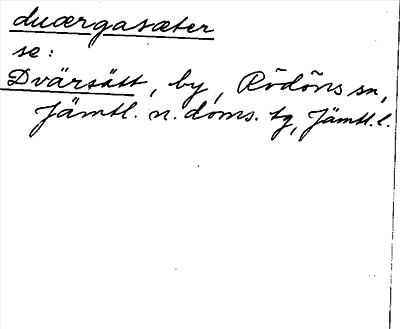 duærgasæter
se:
Dvärsätt, by, Rödöns sn,
Jämtl. n. doms. tg, Jämtl. l.